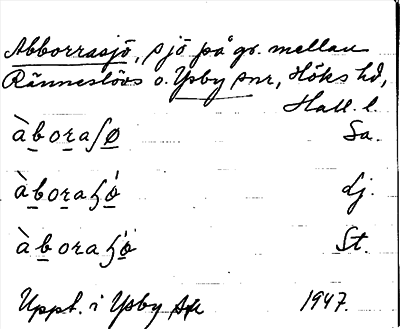 Abborrasjö, sjö på gr. mellan
Ränneslövs o. Ysby snr, Höks hd,
Hall. l.
àboraʃø Sa.
àboraɧø dj.
àboraɧø St.
Uppt. i Ysby 1947.